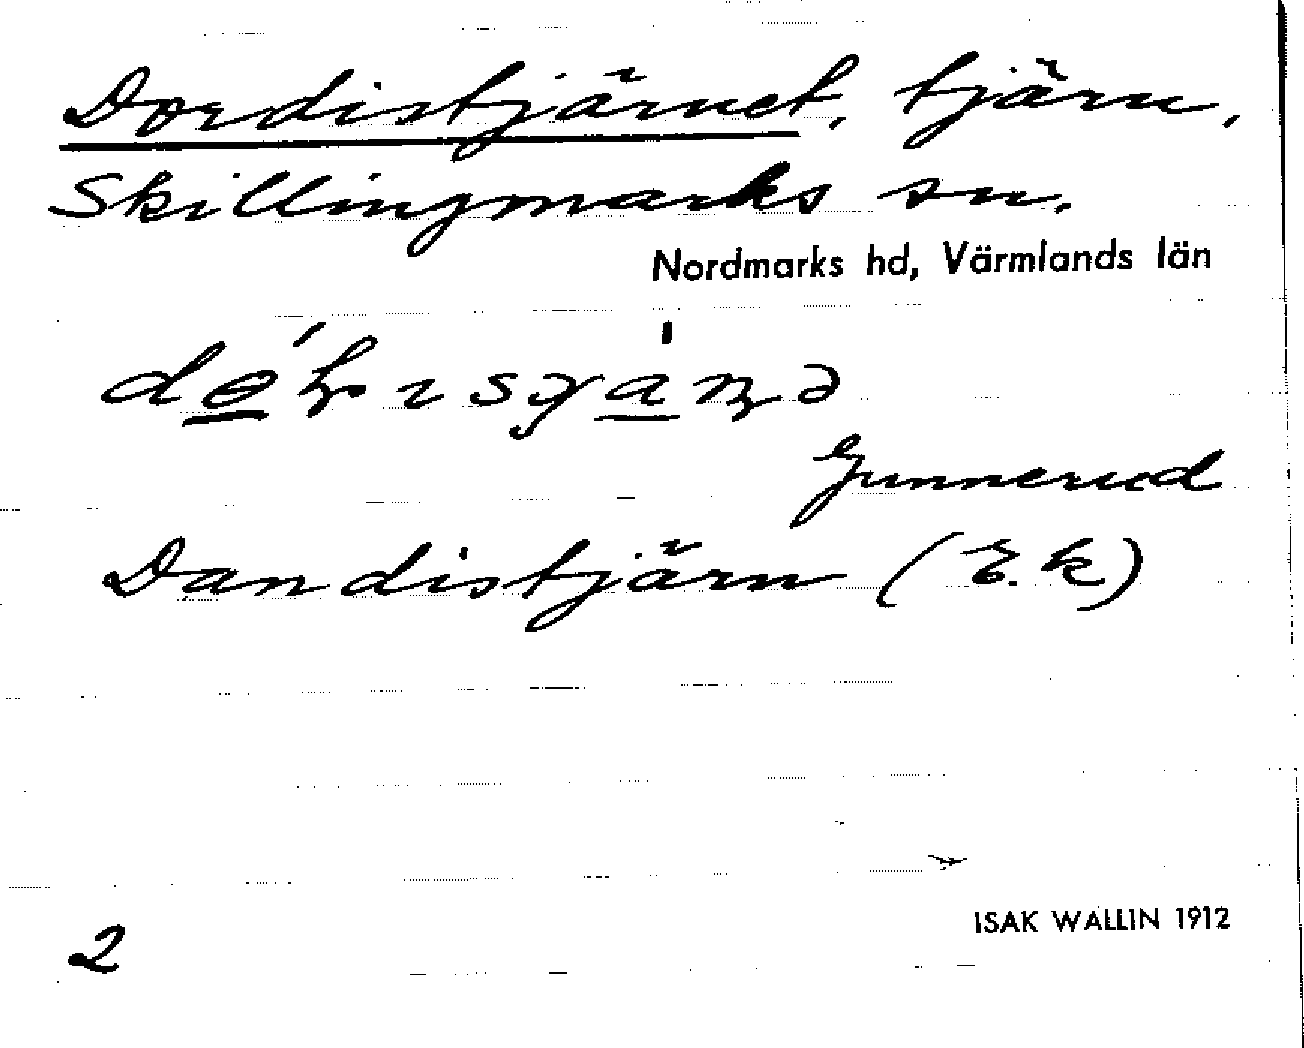 Dordistjärnet, tjärn,
Skillingmarks sn.
Nordmarks hd, Värmlands län
Gunnerud
Dandistjärn (E.k)
ISAK WALLIN 1912
2